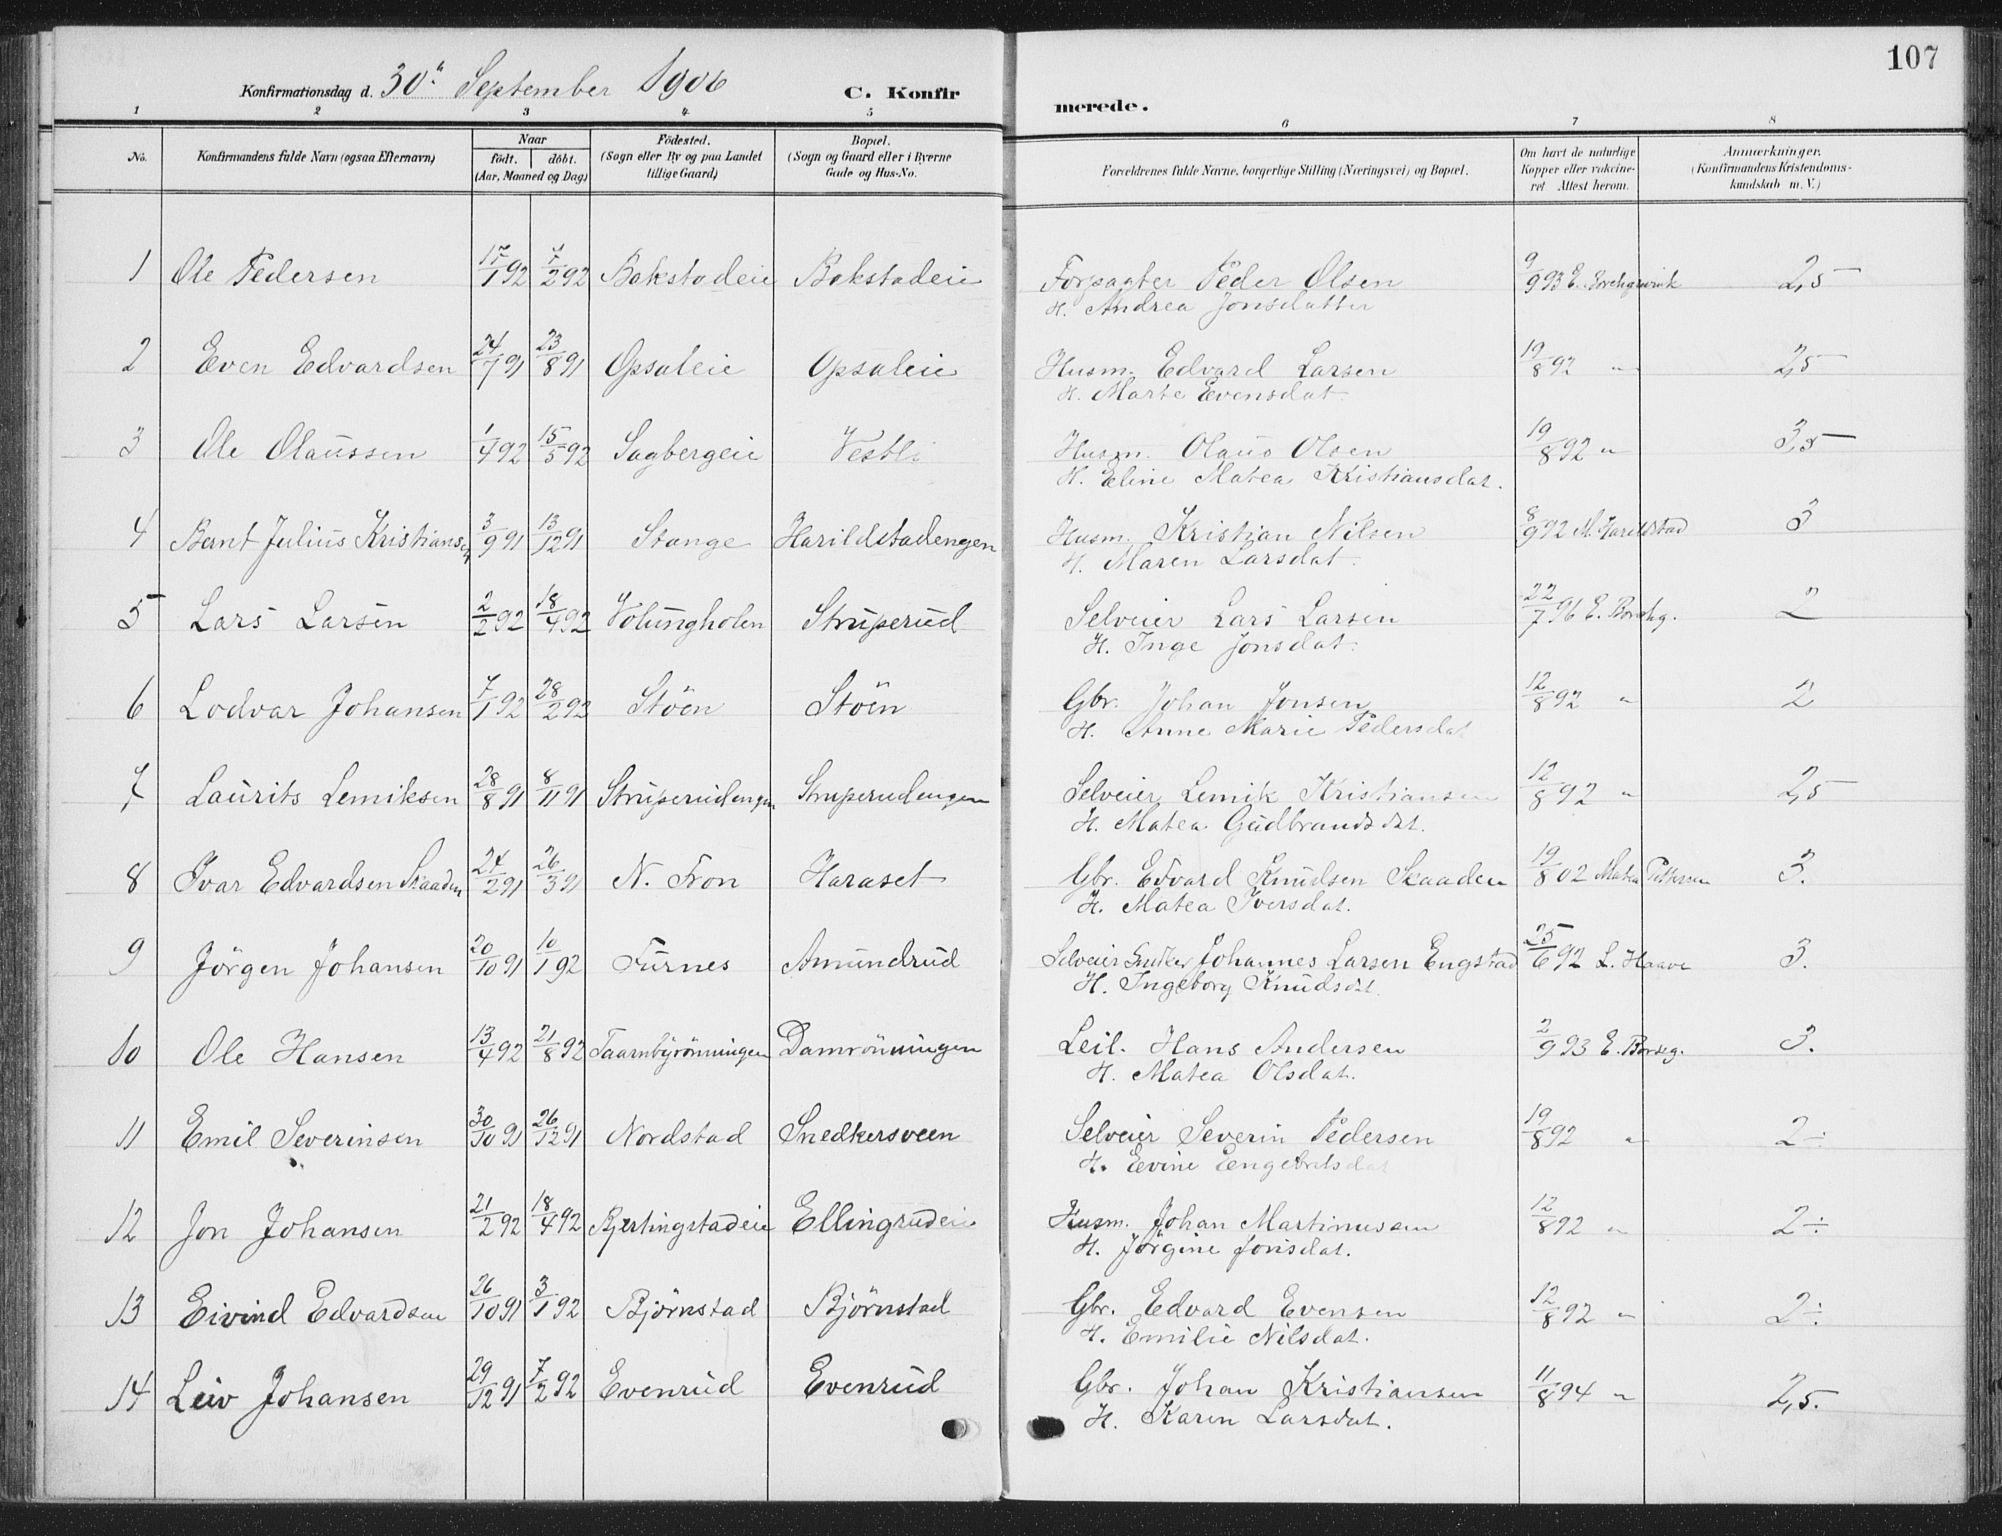 107
Konfirmationsdag d. 30' September 1906 C. Konfirmerede.
1 2 3 4 5 6 7 8
No. Konfirmandens fulde Navn (ogsaa Efternavn) Naar födt. döbt. (Aar, Maaned og Dag) Födested. (Sogn eller By og paa Landet tillige Gaard) Bopæl. (Sogn og Gaard eller i Byerne Gade og Hus-No. Forældrenes fulde Navne, borgerlige Stilling (Næringsvei) og Bopæl. Om havt de naturlige Kopper eller vakcineret Attest herom. Anmærkninger. (Konfirmandens Kristendomskundskab m. V.)
1 Ole Pedersen 15/1 92 7/2 92 Bakstadeie Bakstadeie Forpagter Peder Olsen 9/9 93 E. Borchgrevink 2,5
H. Andrea Jonsdatter
2 Even Edvardsen 24/7 91 23/8 91 Opsaleie Opsaleie Husm. Edvard Larsen 19/8 92 " 2,5
H. Marte Evensdat.
3 Ole Olaussen 1/4 92 15/5 92 Sagbergeie Vestli Husm. Olaus Olsen 19/8 92 " 3,5
H. Eline Matea Kristiansdat.
4 Bernt Julius Kristiansen 3/9 91 13/12 91 Stange Harildstadengen Husm. Kristian Nilsen 8/9 92 M. Harildstad 3
H. Maren Larsdat.
5 Lars Larsen 2/2 92 18/4 92 Volungholen Struperud Selveier Lars Larsen 22/7 96 E. Borchg. 2
H. Inge Jonsdat.
6 Lodvar Johansen 7/1 92 28/2 92 Stöen Stöen Gbr. Johan Jonsen 12/8 92 " 2
H. Anne Marie Pedersdat
7 Laurits Lemiksen 28/8 91 8/11 91 Struperudengen Struperudengen Selveier Lemik Kristiansen 12/8 92 " 2,5
H. Matea Gudbrandsdat.
8 Ivar Edvardsen Skaaden 24/2 91 26/3 91 N. Fron Haraset Gbr. Edvard Knudsen Skaaden 19/8 02 Matea Pettersen 3.
H. Matea Iversdat.
9 Jörgen Johansen 20/10 91 10/1 92 Furnes Amundrud Selveier Johannes Larsen Engstad 25/6 92 L. Haave 3.
H. Ingeborg Knudsdt.
10 Ole Hansen 13/4 92 21/8 92 Taarnbyrönningen Damrönningen Leil. Hans Andersen 2/9 93 E. Borcg. 3.
H. Matea Olsdat.
11 Emil Severinsen 30/10 91 26/12 91 Nordstad Snedkersveen Selveier Severin Pedersen 19/8 92 " 2÷
H. Evine Engebretsdat
12 Jon Johansen 21/2 92 18/4 92 Bjertingstadeie Ellingrudeie Husm. Johan Martinusen 12/8 92 " 2÷
H. Jörgine Jonsdat.
13 Eivind Edvardsen 26/10 91 3/1 92 Björnstad Björnstad Gbr. Edvard Evensen 12/8 92 " 2÷
H. Emilie Nilsdat.
14 Leiv Johansen 29/12 91 7/2 92 Evenrud Evenrud Gbr. Johan Kristiansen 11/8 94 " 2,5.
H. Karen Larsdat.